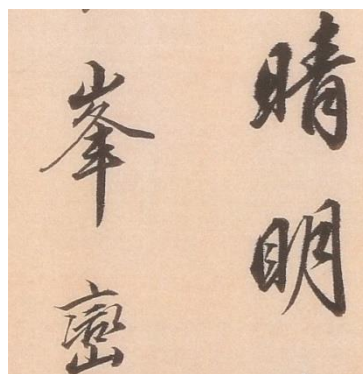 晴明
峯巒